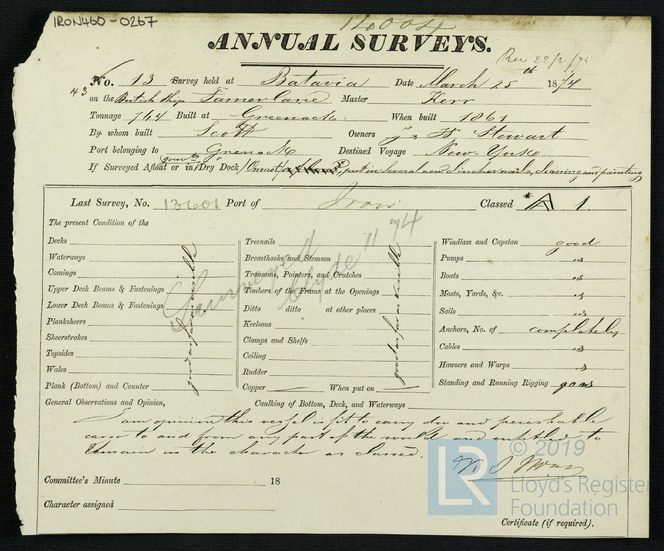 IRON460-0267
ANNUAL SURVEYS.
Rec 28/2/75
No. 13 Survey held at Batavia Date March 25th 1874
43
on the British Ship Tamerlane Master Kerr
Tonnage 764 Built at Greenock When built 1861
By whom built Scott Owners J. & W. Stewart
Port belonging to Greenock Destined Voyage New York
If Surveyed Afloat or in Dry Dock put in several new cleaning and painting
Last Survey, No. 13601 Port of Iron Classed A 1
The present Condition of the
Decks
Waterways
Comings
Upper Deck Beams & Fastenings
Lower Deck Beams & Fastenings
Planksheers
Sheerstrakes
Topsides
Wales
Plank (Bottom) and Counter
good as far as visible
Treenails
Breasthooks and Stemson
Transoms, Pointers, and Crutches
Timbers of the Frame at the Openings
Ditto ditto at other places
Keelsons
Clamps and Shelfs
Ceiling
Rudder
Copper When put on
good as far as visible
Clyde 11 74
Windlass and Capstan good
Pumps
Boats
Masts, Yards, &c.
Sails
Anchors, No. of completely
Cables
Hawsers and Warps
Standing and Running Rigging good
General Observations and Opinion, Caulking of Bottom, Deck, and Waterways
I am opinion this vessel is fit to carry dry and perishable
cargo to and from any part of the world and entitled to
remain in the character as classed.
Committee's Minute 18
Character assigned
Certificate (if required).
LR
© 2019
Lloyd's Register
Foundation